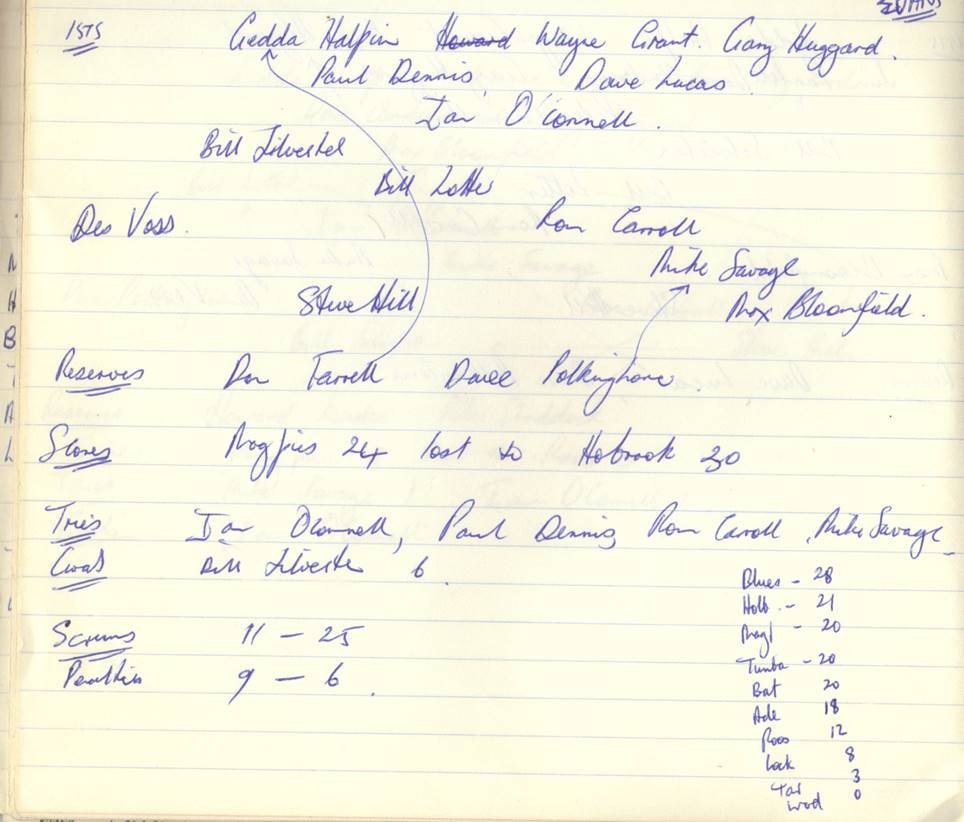 ISTS Gedda Halpin Howard Wayne Grant. Gary Huggard.
Paul Dennis, Dave Lucas
Ian O'Connell.
Bill Silvester
Bill Lotter
Des Voss. Ron Carroll
Mike Savage
Steve Hill Max Bloomfield.
Reserves Don Farrell Dave Polkinghorne.
Scores Magpies 24 lost to Holbrook 30
Tries Ian O'Connell, Paul Dennis, Ron Carroll, Mike Savage
Goals Bill Silvester 6.
Blues - 28
Holb. - 21
Scrums 11 - 25
Magp - 20
Penalties 9 - 6.
Tumba - 20
Bat 20
Ade 18
Roos 12
Lock 8
Tar 3
Wod 0
N
H
B
T
A
L